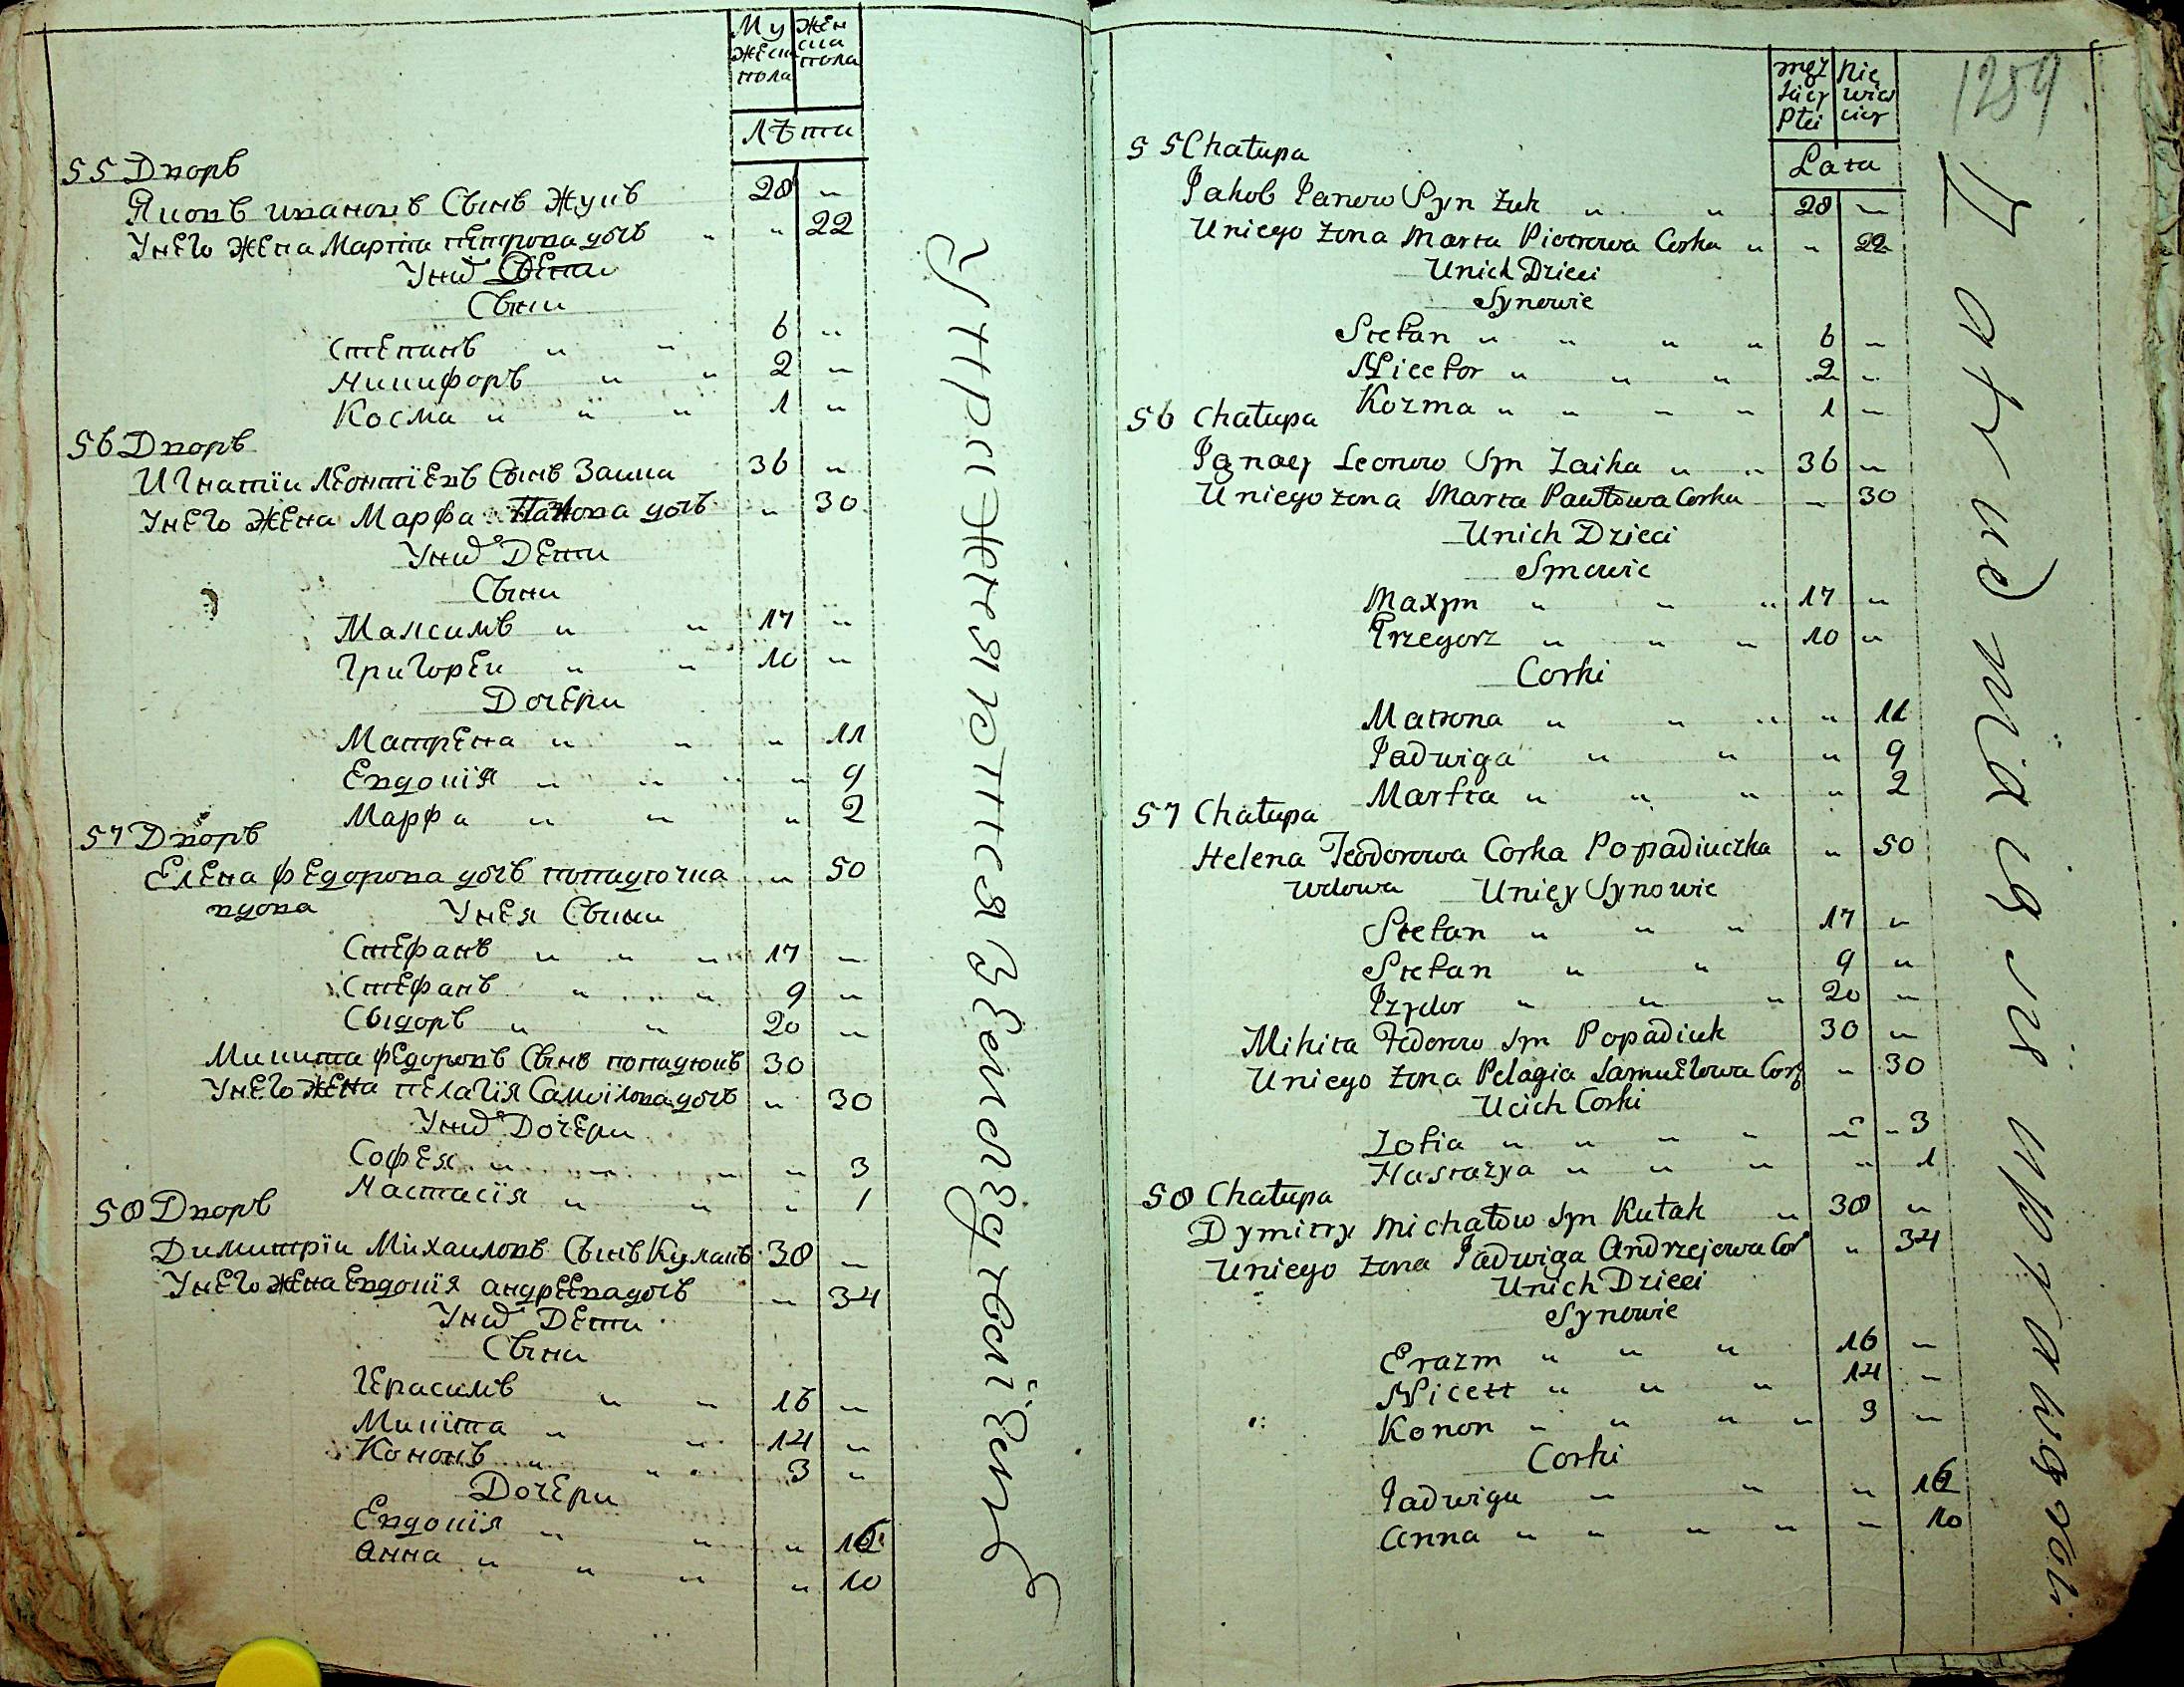 Му жеска пола
Жен ска пола
Лѣта
55 Дворъ
Яковъ ивановъ Сынъ Жукъ 28 "
Унего жена Марта петрова дочь " " 22
Уних Дети
Сыни
Степанъ " " 6 "
Никифоръ " " 2 "
Косма " " " 1 "
56 Дворъ
Игнатіи Леонтіевъ Сынъ Заика 36 "
Унего жена Марфа Павлова дочь " 30
Уних Дети
Сыни
Максимъ " " 17 "
Григореи " " 10 "
Дочери
Матрена " " " 11
Евдокія " " " " 9
Марфа " " " 2
57 Дворъ
Елена федорова дочь попадючка " 50
вдова Унея Сыни
Стефанъ " " " 17 "
Стефанъ " " " 9 "
Сыдоръ " " 20 "
Микита федоровъ Сынъ попадюкъ 30
Унего жена пелагія Самоілова дочь " 30
Уних Дочери
Софея " " " " 3
Настасія " " " 1
58 Дворъ
Димитріи Михаиловъ Сынъ Кулакъ 38 "
Унего жена Евдокія андреева дочь " 34
Уних Дети
Сыни
Герасимъ " " 16 "
Микіта " " 14 "
Кононъ " " 3 "
Дочери
Евдокія " " " 12
анна " " " " 10
1259
męz kiey Płci
Nie wies ciey
Lata
55 Chałupa
Jakob Janow Syn Żuk " " 28 "
Uniego żona Marta Piotrowa Corka " " 22
Unich Dzieci
Synowie
Stefan " " " " 6 "
Nicefor " " " 2 "
Kozma " " " " 1 "
56 Chałupa
Ignacy Leonow Syn Zaika " " 36 "
Uniego żona Marta Pawłowa Corka " 30
Unich Dzieci
Synowie
Maxym " " " 17 "
Grzegorz " " " 10 "
Corki
Matrona " " " " 11
Jadwiga " " " 9
Marfta " " " " 2
57 Chałupa
Helena Teodorowa Corka Popadiuczka " 50
wdowa Uniey Synowie
Stefan " " " 17 "
Stefan " " 9 "
Izydor " " " 20 "
Mikita Fedorow Syn Popadiuk 30 "
Uniego żona Pelagia Samuelowa Cor " 30
Ucich Corki
Zofia " " " " " " 3
Nastazya " " " " 1
58 Chałupa
Dymitry Michałow Syn Kułak " 38 "
Uniego żona Jadwiga Andrzejowa Cor " 34
Unich Dzieci
Synowie
Erazm " " " 16 "
Nicett " " " 14 "
Konon " " " " 3 "
Corki
Jadwiga " " " 12
Anna " " " " " 10